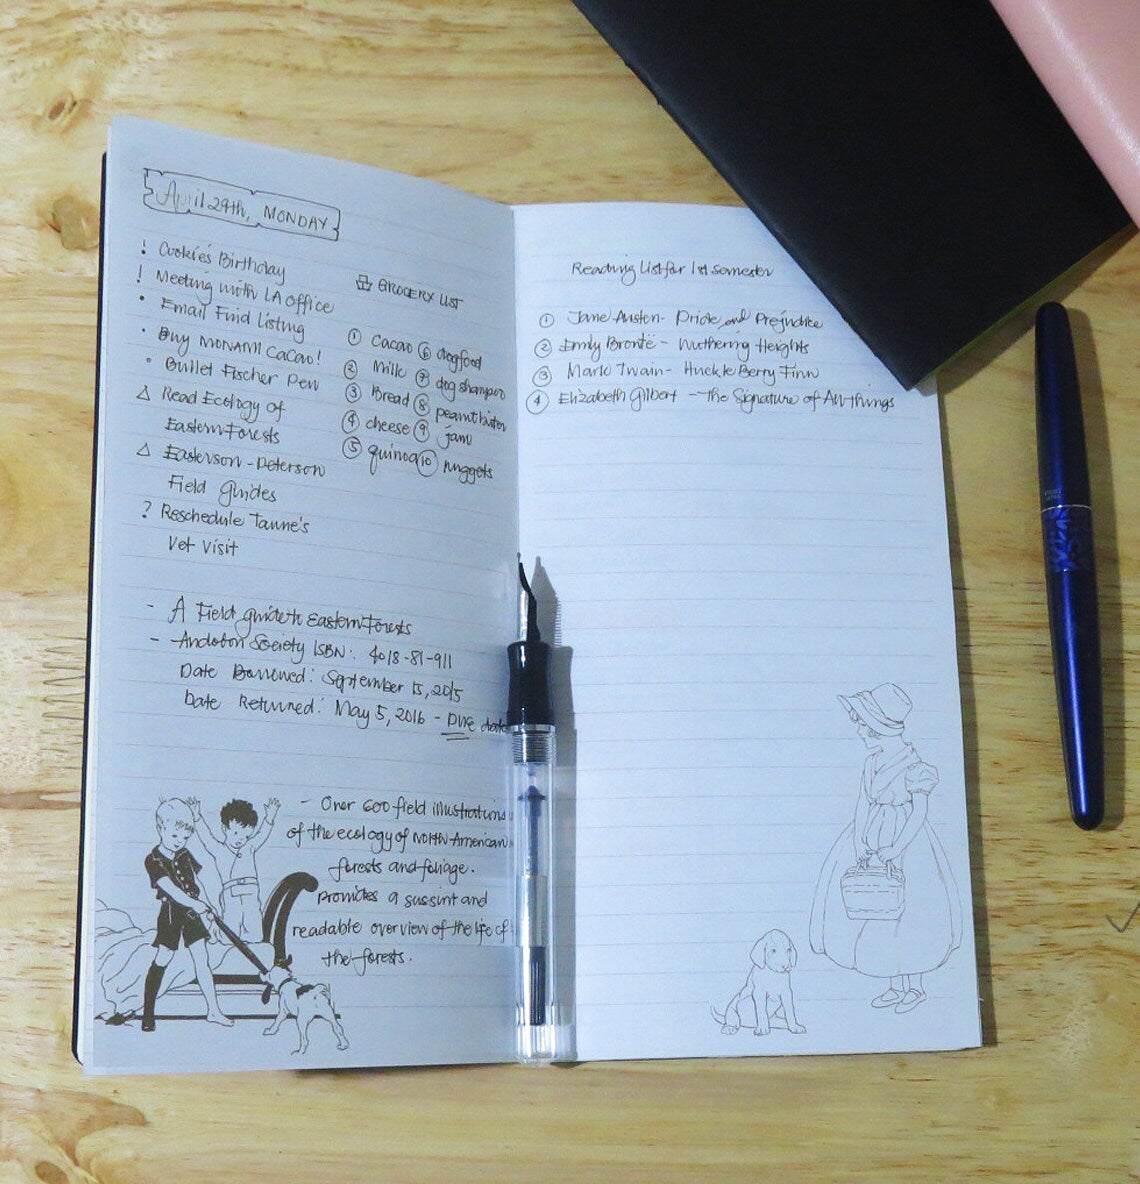 April 29th, MONDAY
! Cookie's Birthday
! Meeting with LA Office
• Email Find Listing
• Buy MONAMI Cacao!
• Bullet Fischer Pen
△ Read Ecology of
Eastern Forests
△ Easterson-Peterson
Field Guides
? Reschedule Tanne's
Vet Visit
GROCERY LIST
① Cacao ⑥ dog food
② Milk ⑦ dog shampoo
③ Bread ⑧ peanut butter
④ cheese ⑨ jam
⑤ quinoa ⑩ nuggets
- A Field guide to Eastern Forests
- Audobon Society ISBN: 4018-81-911
Date Borrowed: September 15, 2015
Date Returned: May 5, 2016 - Due date
- Over 600 field illustrations
of the ecology of North-American
forests and foliage.
provides a sussint and
readable overview of the life of
the forests.
Reading List for 1st semester
① Jane Austen - Pride and Prejudice
② Emily Brontë - Wuthering Heights
③ Mark Twain - Huckle Berry Finn
④ Elizabeth Gilbert - The Signature of All Things